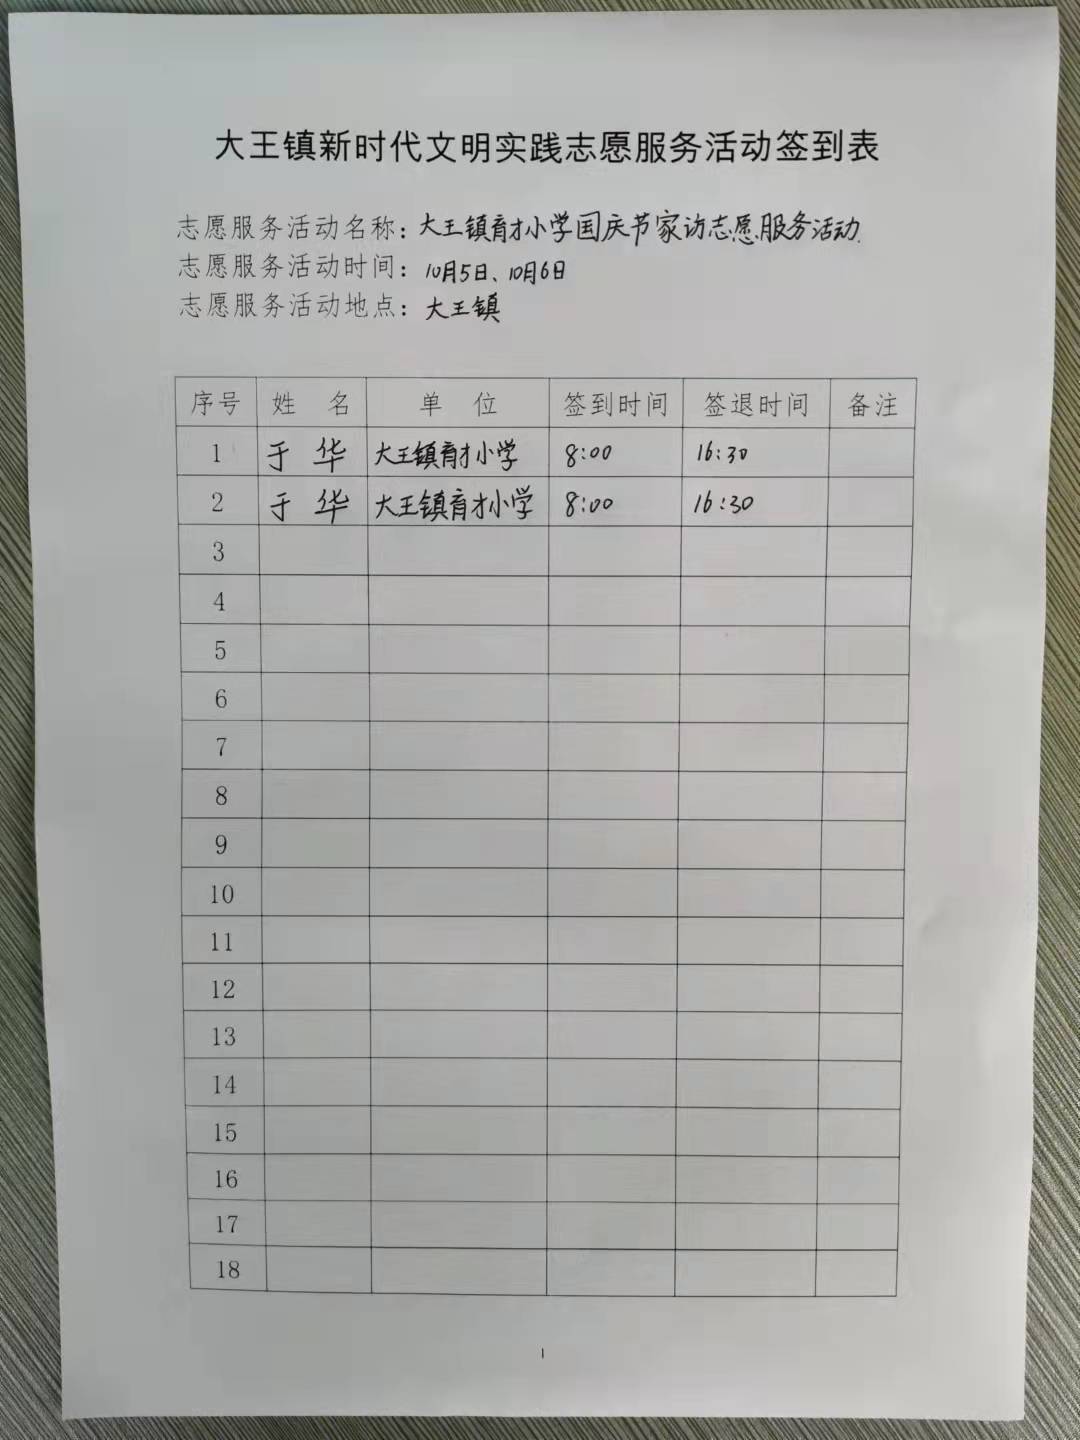 大王镇新时代文明实践志愿服务活动签到表
志愿服务活动名称：大王镇育才小学国庆节家访志愿服务活动.
志愿服务活动时间：10月5日、10月6日
志愿服务活动地点：大王镇
序号 姓 名 单 位 签到时间 签退时间 备注
1 于 华 大王镇育才小学 8:00 16:30
2 于 华 大王镇育才小学 8:00 16:30
3
4
5
6
7
8
9
10
11
12
13
14
15
16
17
18
1